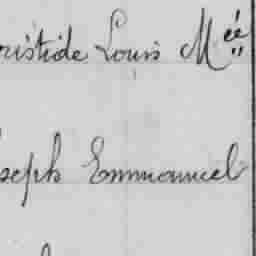 ristide Louis Mée
seph Emmanuel